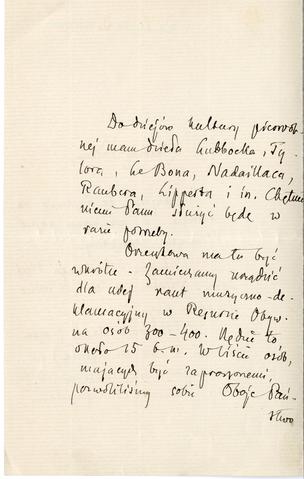 Do dziejów kultury pierwot-
nej mam dzieła Lubbocka, Ty-
lora, Le Bona, Nadaillaca,
Raubera, Lipperta i in. Chętnie
niemi Panu służyć będę w
razie potrzeby.
Orzeszkowa ma tu być
wkrótce. Zamierzamy urządzić
dla niej raut muzyczno-de-
klamacyjny w Resursie Obyw.
na osób 300-400. Będzie to
około 15 b. m. W liście osób,
mających być zaproszonemi,
pozwoliliśmy sobie Oboje Pań-
stwo